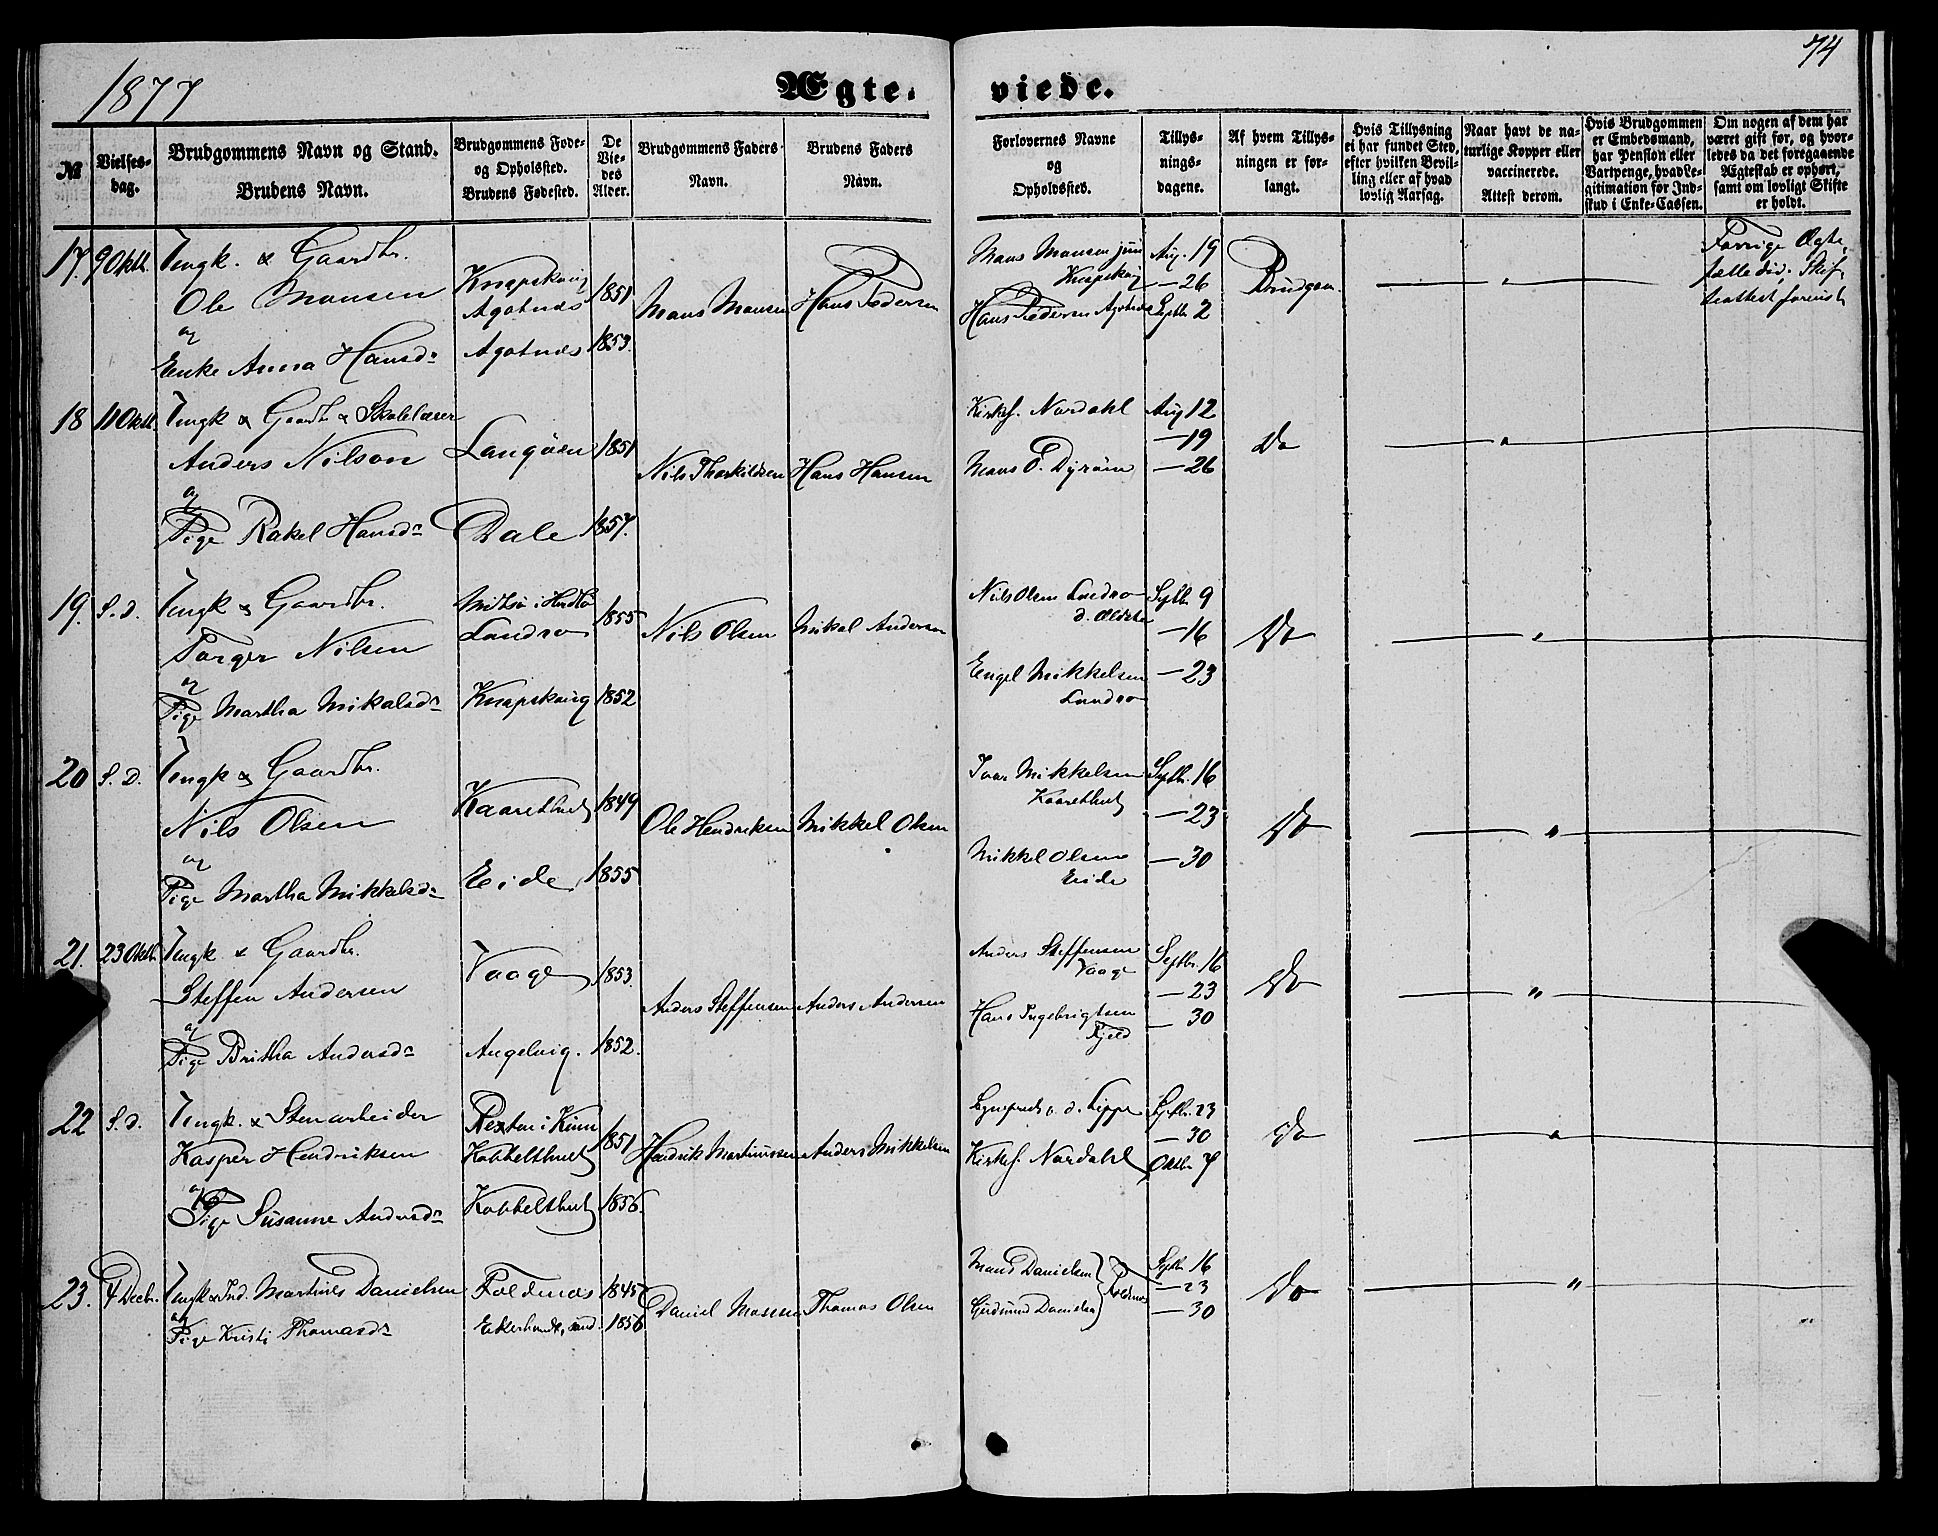 1877
Ægte-
viede.
74
№
Vielses-
dag.
Brudgommens Navn og Stand.
Brudens Navn.
Brudgommens Føde-
og Opholdsted.
Brudens Fødested.
De
Vie-
des
Alder.
Brudgommens Faders
Navn.
Brudens Faders
Navn.
Forlovernes Navne
og
Opholdssted.
Tillys-
nings-
dagene.
Af hvem Tillys-
ningen er for-
langt.
Hvis Tillysning
ei har fundet Sted,
efter hvilken Bevil-
ling eller af hvad
lovlig Aarsag.
Naar havt de na-
turlige Kopper eller
vaccinerede.
Attest derom.
Hvis Brudgommen
er Embedsmand,
har Pension eller
Vartpenge, hvad Le-
gitimation for Ind-
skud i Enke-Cassen.
Om nogen af dem har
været gift før, og hvor-
ledes da det foregaaende
Ægteskab er ophørt,
samt om lovligt Skifte
er holdt.
17. 9 Oktb. Ungk. & Gaardbr.
Ole Monsen
og
Enke Anna Hansd.
Knapskoug
Agotnes
Agotnes
1851
1853.
Mons Monsen
Hans Pedersen
Mons Monsen jun
Knapskoug
Hans Pedersen Agotnes
Aug. 19
— 26
Septb 2
Brudgom.
Forrige Ægte-
fælle død. Skif-
teattest forevist
18 11 Oktb. Ungk & Gaardb & Skolelærer
Anders Nilson
og
Pige Rakel Hansd.
Langøen
Dale
1851
1857.
Nils Thorkildsen
Hans Hansen
Kirkes. Nordahl
Mons O. Dyrøen
Aug 12
— 19
— 26
Do
19. S. D. Ungk & Gaardbr.
Torger Nilsen
og
Pige Martha Mikalsd.
Midtsø i Herdlø
Landro
Knapskoug
1855
1852
Nils Olsen
Mikal Andersen
Nils Olsen Landro
d. Ældste
Engel Mikkelsen
Landro
Septb 9
— 16
— 23
Do
20 S. D. Ungk & Gaardbr.
Nils Olsen
og
Pige Martha Mikkelsd.
Kaarethvet
Eide
1849
1855
Ole Hendriksen
Mikkel Olsen
Ivar Mikkelsen
Kaarethvet
Mikkel Olsen
Eide
Septb. 16
— 23
— 30
Do
21. 23 Oktb. Ungk & Gaardbr.
Steffen Andersen
og
Pige Britha Andersd.
Vaage
Angelvig.
1853.
1852.
Anders Steffensen
Anders Andersen
Anders Steffensen
Vaage
Hans Ingebrigtsen
Fjeld
Septbr. 16
— 23
— 30
Do
22 S. d. Ungk. & Stenarbeider
Kasper Hendriksen
og
Pige Susanne Andersd.
Resten i Kinn
Kobbelthvet
Kobbelthvet
1851
1856.
Hendrik Martinussen
Anders Mikkelsen
v. d. Lippe
Kirkes. Nordahl
Septb. 23
— 30
Oktb. 7
Do
23. 4 Decb. Ungk & Ind. Martines Danielsen
og
Pige Kristi Thomasd.
Foldnes
1845
1856
Daniel Monsen
Thomas Olsen
Mons Danielsen
Gudmund Danielsen
Foldnes
Septb. 16
— 23
— 30
Do